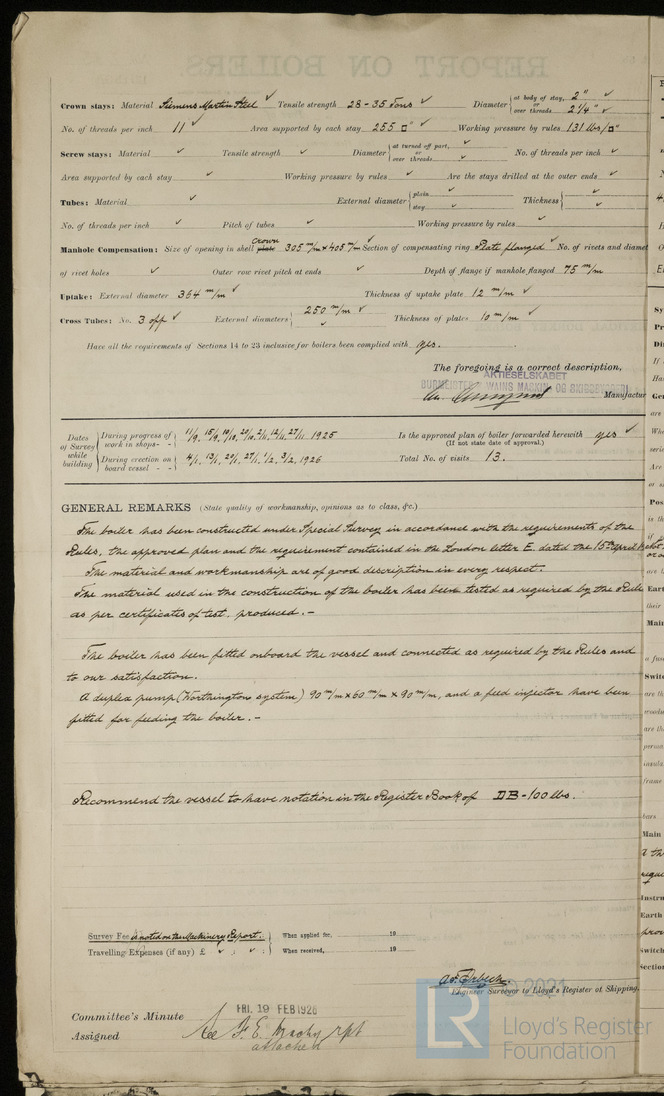 REPORT ON BOILERS
Crown stays: Material Siemens Martin Steel ✓ Tensile strength 28-35 Tons ✓ Diameter { at body of stay, 2" ✓ or over threads 2¼" ✓
No. of threads per inch 11 ✓ Area supported by each stay 255 □" ✓ Working pressure by rules 131 lbs/□"
Screw stays: Material ✓ Tensile strength ✓ Diameter { at turned off part, ✓ or over threads ✓ No. of threads per inch ✓
Area supported by each stay ✓ Working pressure by rules ✓ Are the stays drilled at the outer ends ✓
Tubes: Material ✓ External diameter { plain ✓ stay ✓ Thickness { ✓ ✓
No. of threads per inch ✓ Pitch of tubes ✓ Working pressure by rules ✓
Manhole Compensation: Size of opening in shell plate crown 305 m/m × 405 m/m ✓ Section of compensating ring Plate flanged ✓ No. of rivets and diamet
of rivet holes ✓ Outer row rivet pitch at ends ✓ Depth of flange if manhole flanged 75 m/m
Uptake: External diameter 364 m/m ✓ Thickness of uptake plate 12 m/m ✓
Cross Tubes: No. 3 off ✓ External diameters { 250 m/m ✓ ✓ Thickness of plates 10 m/m ✓
Have all the requirements of Sections 14 to 23 inclusive for boilers been complied with yes.
The foregoing is a correct description,
AKTIESELSKABET
BURMEISTER & WAINS MASKIN- OG SKIBSBYGGERI
Manufactur
Dates of Survey while building { During progress of work in shops - - 11/9, 15/9, 19/10, 20/10, 2/11, 12/11, 27/11 1925
Is the approved plan of boiler forwarded herewith yes ✓
(If not state date of approval.)
During erection on board vessel - - 4/1, 13/1, 20/1, 27/1, 1/2, 3/2, 1926
Total No. of visits 13.
GENERAL REMARKS (State quality of workmanship, opinions as to class, &c.)
The boiler has been constructed under Special Survey in accordance with the requirements of the
Rules, the approved plan and the requirement contained in the London letter E. dated the 15th April
The material and workmanship are of good description in every respect.
The material used in the construction of the boiler has been tested as required by the Rule
as per certificates of test produced.-
The boiler has been fitted onboard the vessel and connected as required by the Rules and
to our satisfaction.
A duplex pump (Worthingtons system) 90 m/m × 60 m/m × 90 m/m, and a feed injector have been
fitted for feeding the boiler.-
Recommend the vessel to have notation in the Register Book of DB-100 lbs.
Survey Fee is noted on the Machinery Report. When applied for, 19
Travelling Expenses (if any) £ ✓ : ✓ : When received, 19
Engineer Surveyor to Lloyd's Register of Shipping.
Committee's Minute FRI. 19 FEB 1926
Assigned See F.E. Machy rpt
attached
© 2021
LR
Lloyd's Register
Foundation